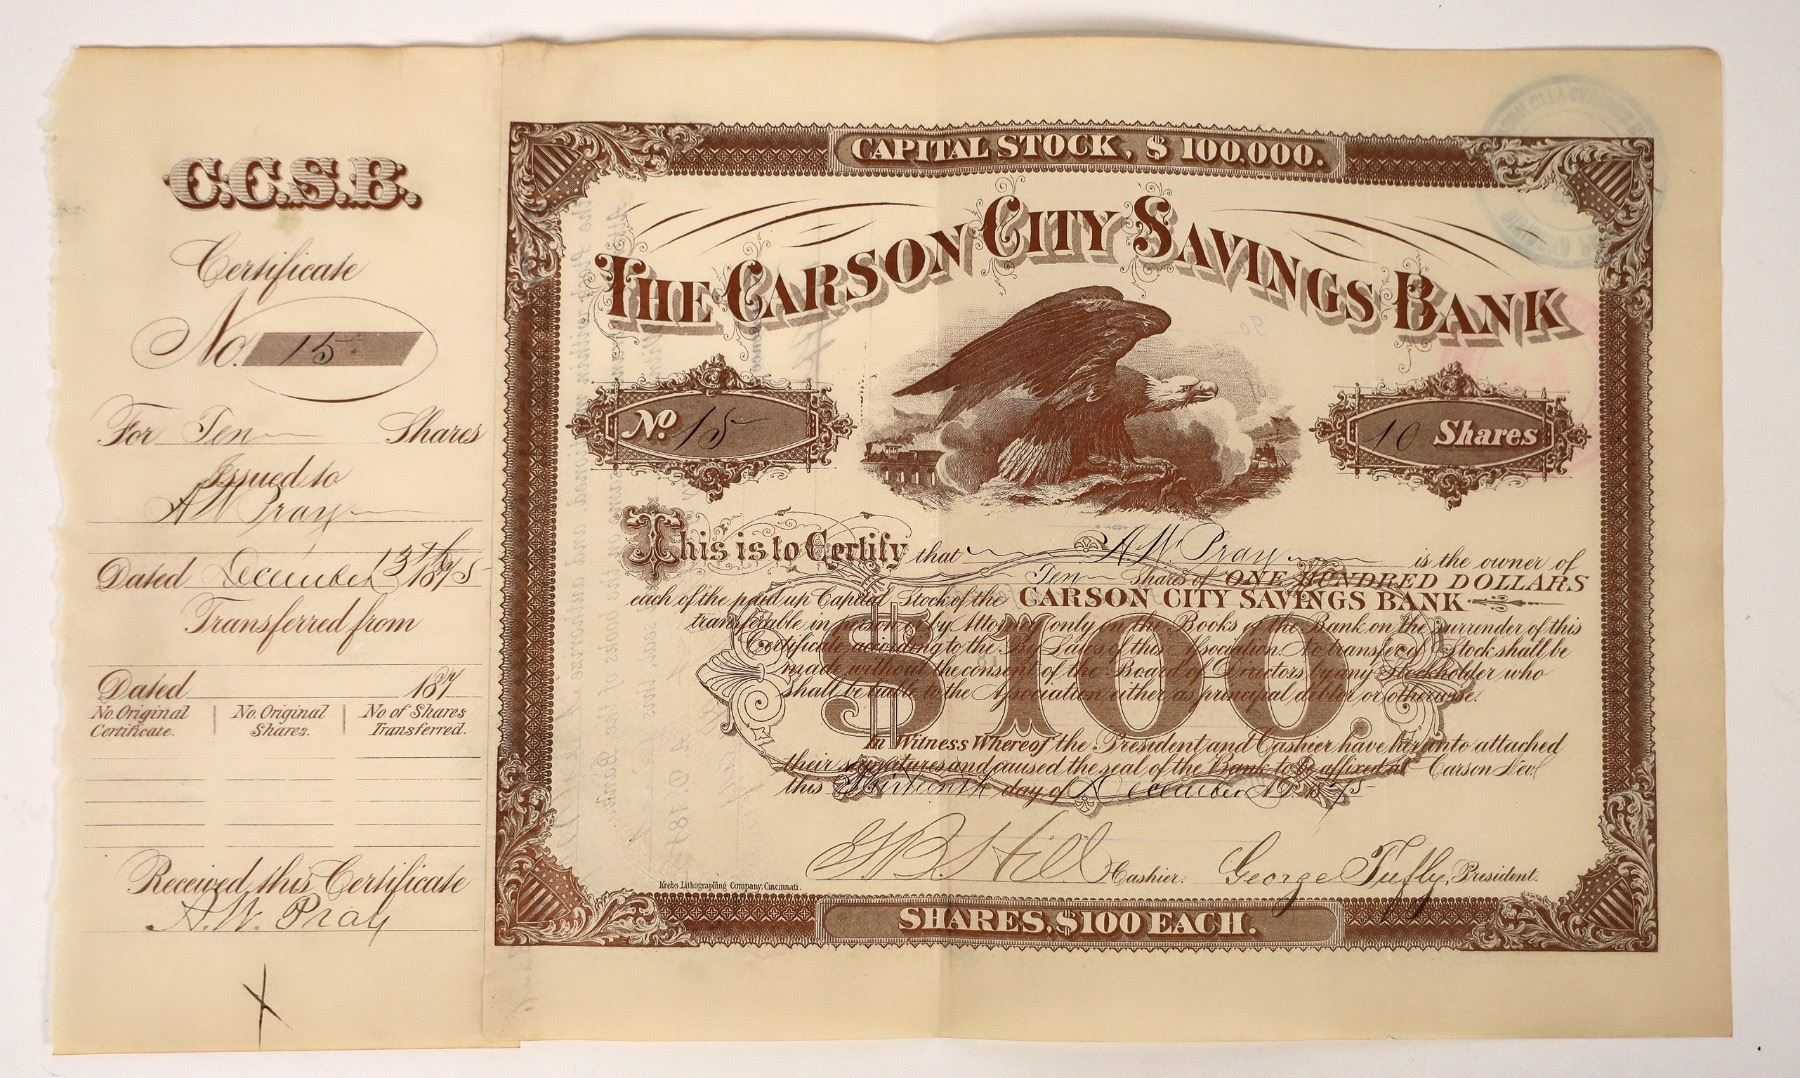 C.C.S.B.
Certificate
No. 15
For Ten Shares
Issued to
A W Pray
Dated December 13th 1875
Transferred from
Dated 187
No. Original Certificate.
No. Original Shares.
No of Shares Transferred.
Received this Certificate
A. W. Pray
X
CAPITAL STOCK, $100,000.
THE CARSON CITY SAVINGS BANK
No. 15
10 Shares
This is to Certify that A W Pray is the owner of
Ten Shares of ONE HUNDRED DOLLARS
each of the paid up Capital Stock of the CARSON CITY SAVINGS BANK
transferable in person or by Attorney only on the Books of the Bank on the surrender of this
Certificate according to the By Laws of this Association. No transfer of Stock shall be
made without the consent of the Board of Directors by any Stockholder who
shall be liable to the Association either as principal debtor or otherwise.
$100.
In Witness Whereof the President and Cashier have hereunto attached
their signatures and caused the seal of the Bank to be affixed at Carson Nev
this Thirteenth day of December A.D. 1875
Hill Cashier. George Tufly, President.
Krebs Lithographing Company, Cincinnati.
SHARES, $100 EACH.